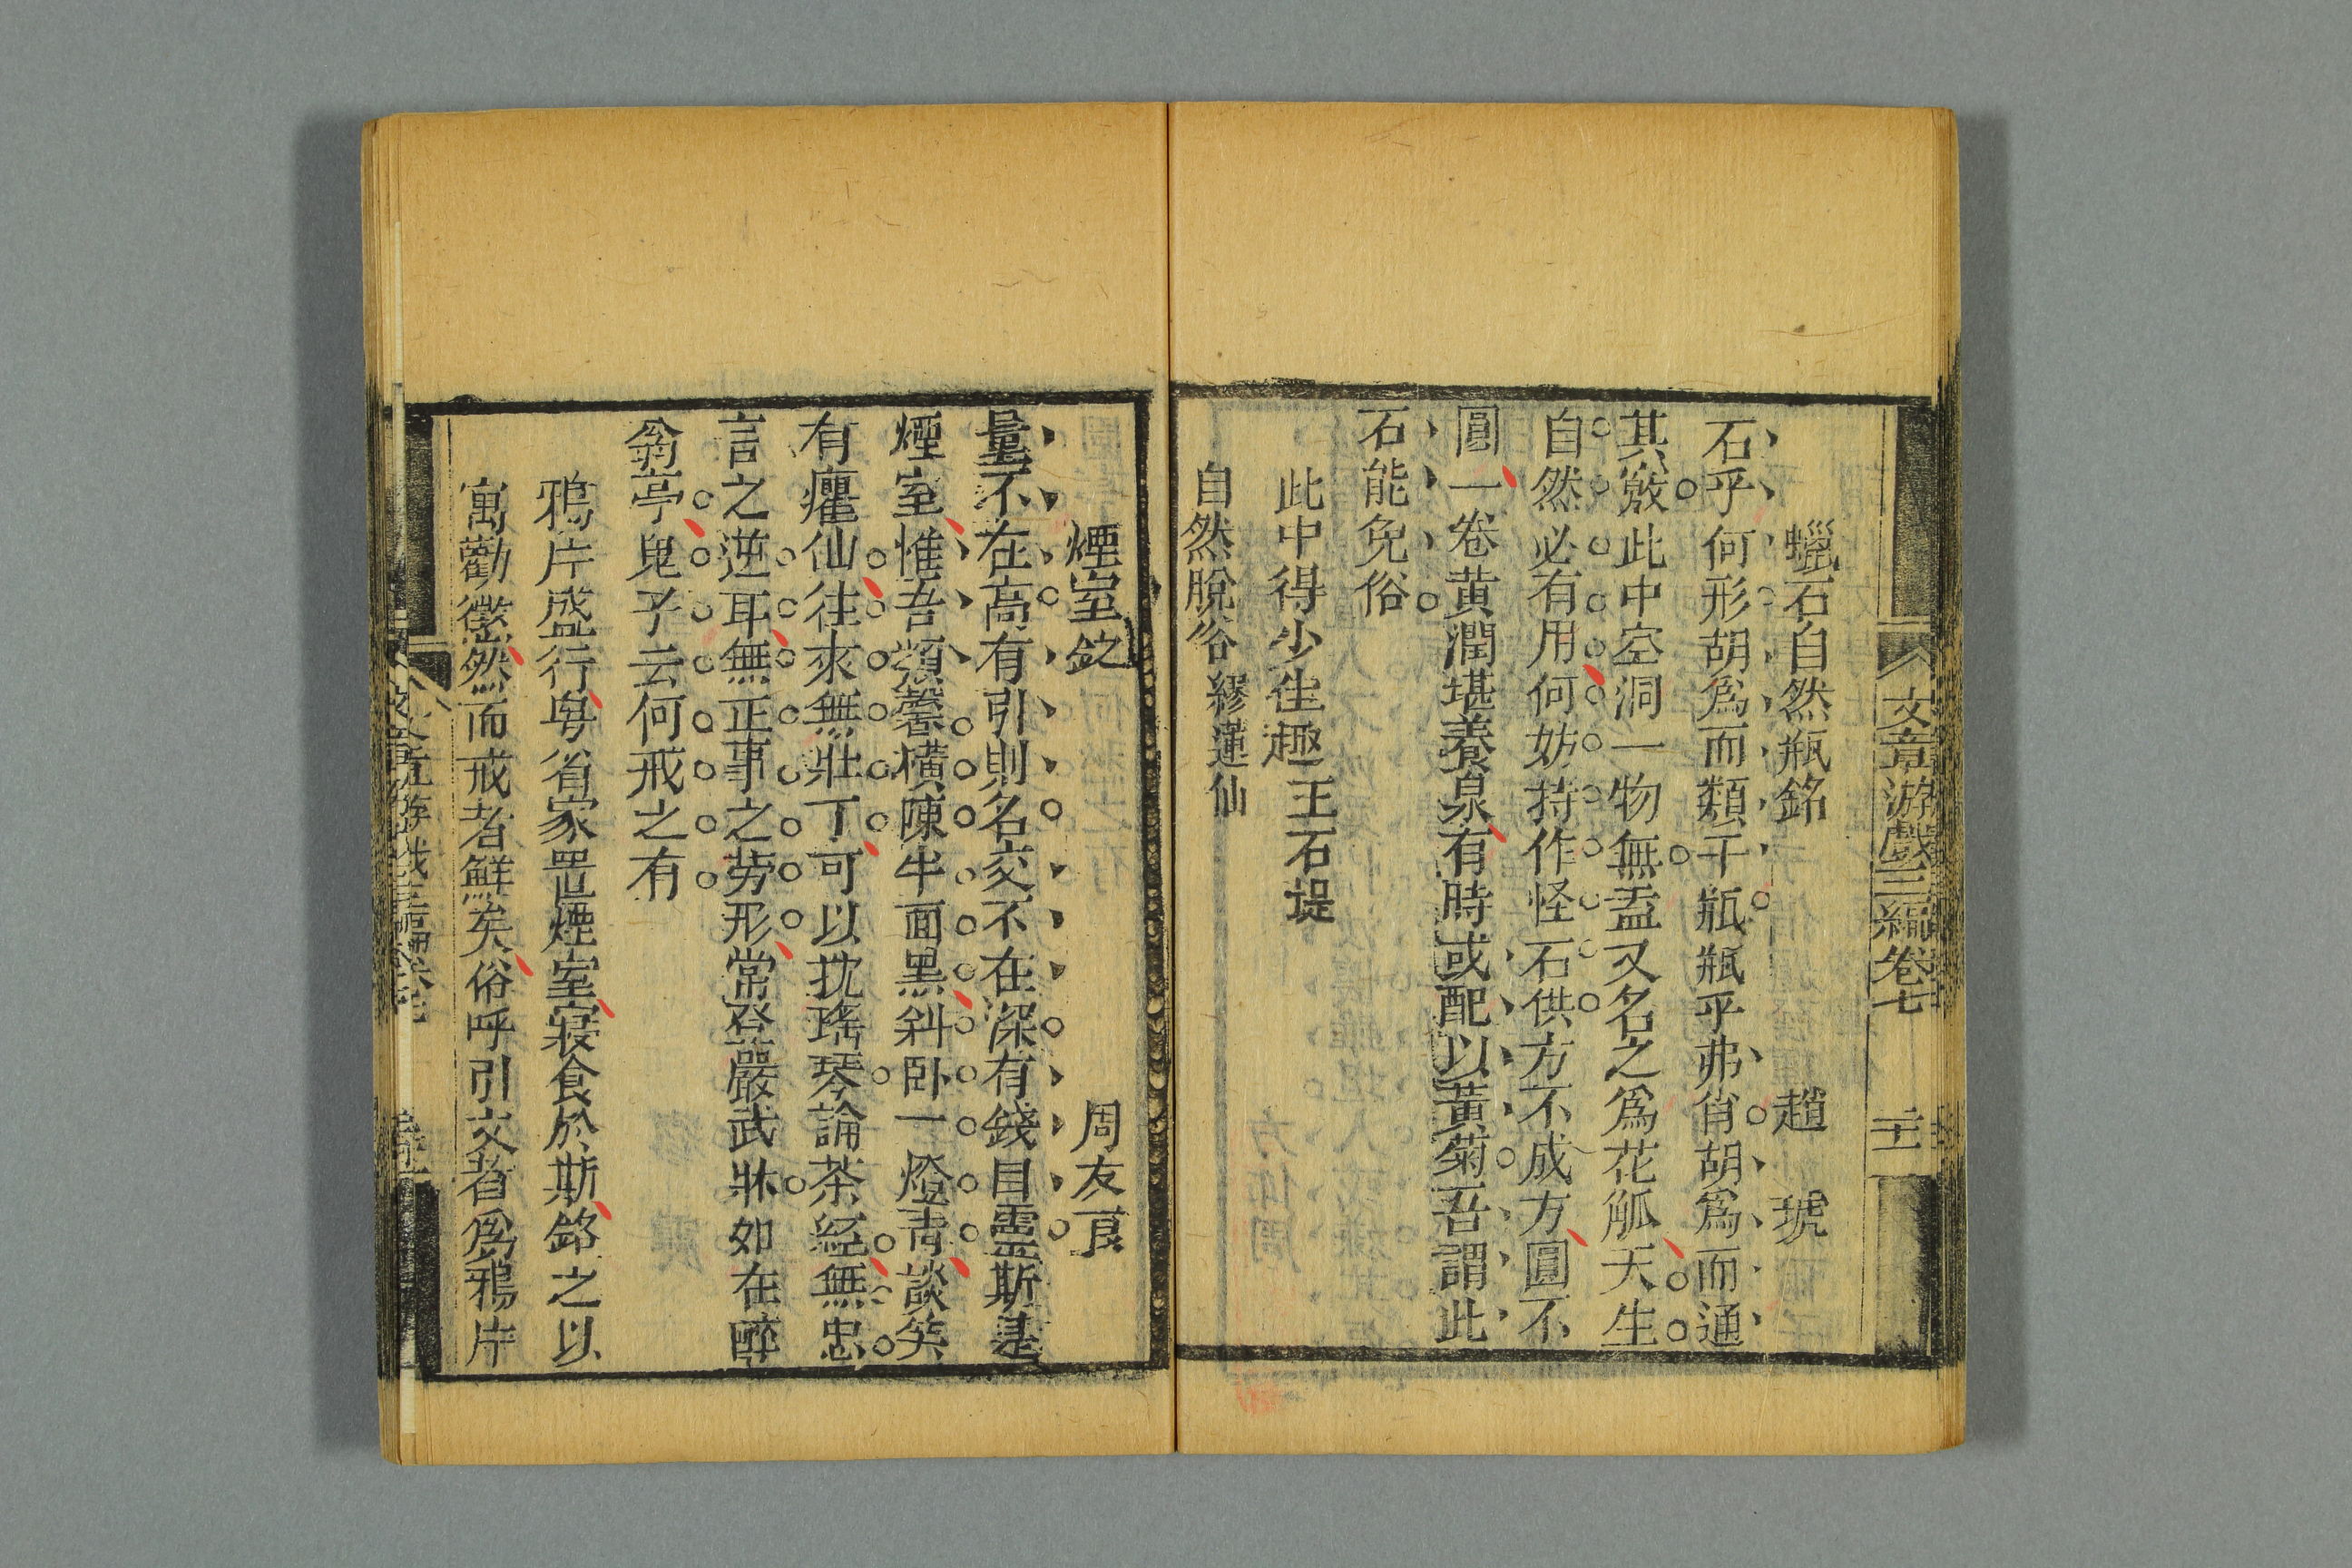 文章游戲三編卷七
蠟石自然瓶銘 趙 琥
石乎何形胡爲而類于瓶瓶乎弗肖胡爲而通
其竅此中空洞一物無盂又名之爲花觚天生
自然必有用何妨持作怪石供方不成方圓不
圓一卷黄潤堪養泉有時或配以黃菊吾謂此
石能免俗
此中得少佳趣王石堤
自然脫俗繆蓮仙
煙室銘 周友良
量不在高有引則名交不在深有錢自靈斯是
煙室惟吾癮馨橫陳半面黑斜卧一燈靑談笑
有癯仙往來無壯丁可以抌瑤琴論茶經無忠
言之逆耳無正事之勞形常登嚴武牀如在醉
翁亭鬼子云何戒之有
鴉片盛行粤省家置煙室寢食於斯銘之以
寓勸懲然而戒者鮮矣俗呼引交者爲鴉片